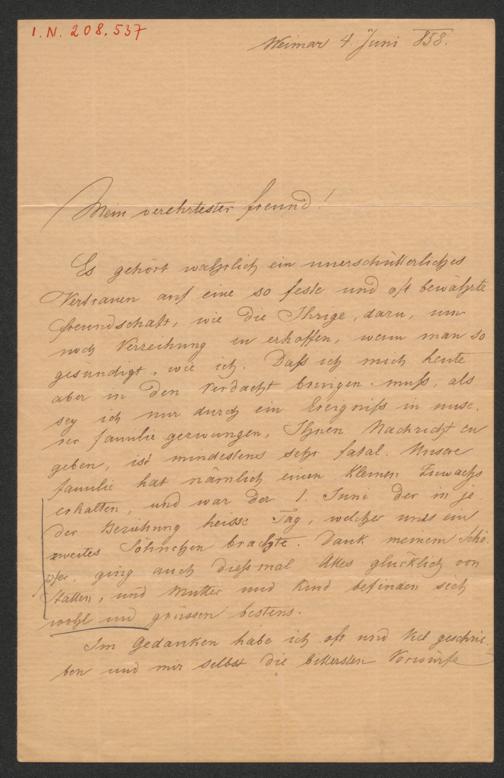 I. N. 208.537
Weimar 4. Juni 858.
Mein verehrtester Freund!
Es gehört wahrlich ein unerschütterliches
Vertrauen auf eine so feste und oft bewährte
Freundschaft, wie die Ihrige, dazu, um
noch Verzeihung zu erhoffen, wenn man so
gesündigt, wie ich. Daß ich mich heute
aber in den Verdacht bringen muß, als
sey ich nur durch ein Ereigniß in unse-
rer Familie gezwungen, Ihnen Nachricht zu
geben, ist mindestens sehr fatal. Unsere
Familie hat nämlich einen kleinen Zuwachs
erhalten, und war der 1. Juni der in je-
der Beziehung heisse Tag, welcher uns ein
zweites Söhnchen brachte. Dank meinem Schö-
pfer, ging auch dießmal Alles glücklich von
Statten, und Mutter und Kind befinden sich
wohl und grüssen bestens.
Im Gedanken habe ich oft und viel geschrie-
ben und mir selbst die bittersten Vorwürfe